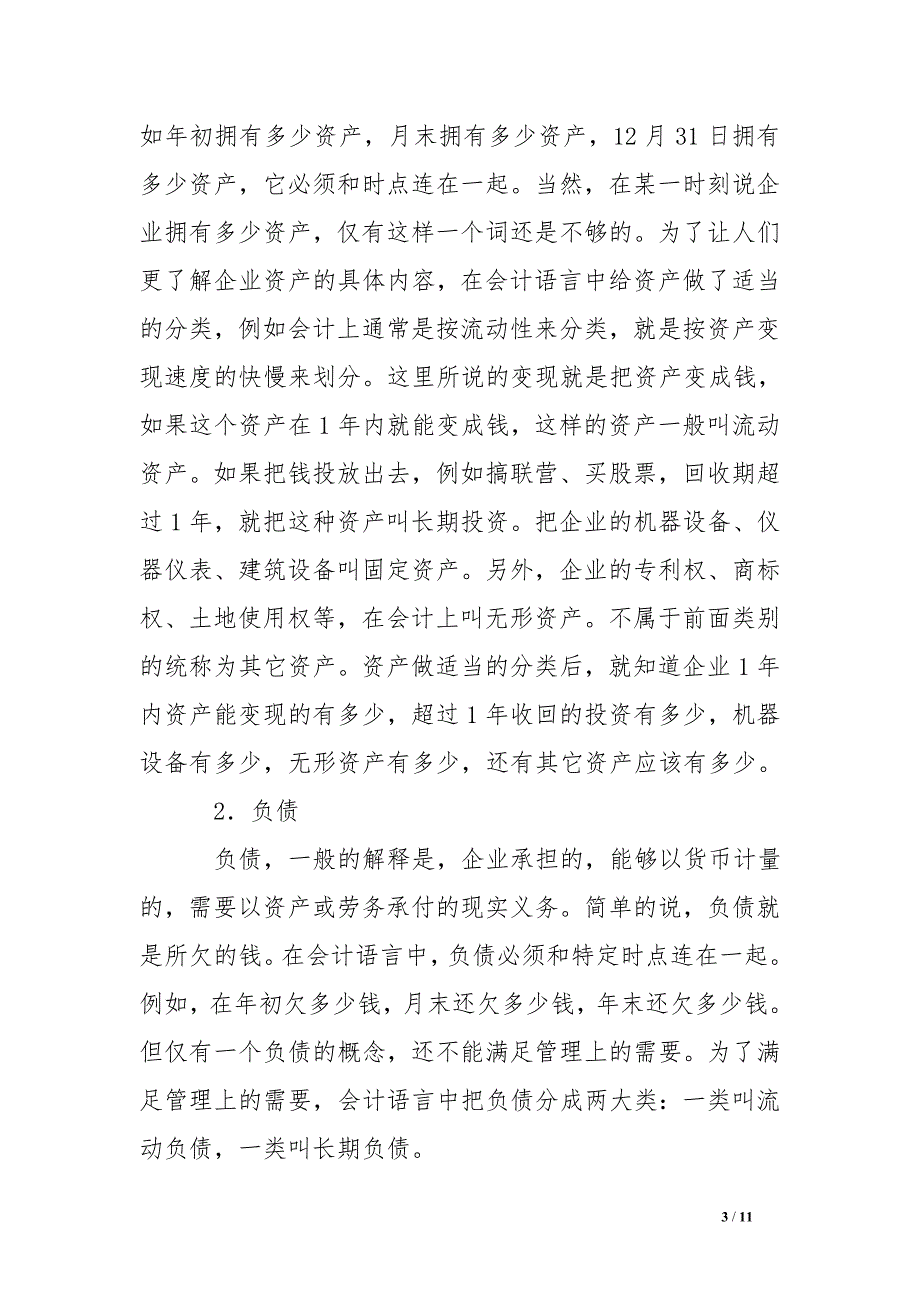 如年初拥有多少资产，月末拥有多少资产，12 月 31 日拥有
多少资产，它必须和时点连在一起。当然，在某一时刻说企
业拥有多少资产，仅有这样一个词还是不够的。为了让人们
更了解企业资产的具体内容，在会计语言中给资产做了适当
的分类，例如会计上通常是按流动性来分类，就是按资产变
现速度的快慢来划分。这里所说的变现就是把资产变成钱，
如果这个资产在 1 年内就能变成钱，这样的资产一般叫流动
资产。如果把钱投放出去，例如搞联营、买股票，回收期超
过 1 年，就把这种资产叫长期投资。把企业的机器设备、仪
器仪表、建筑设备叫固定资产。另外，企业的专利权、商标
权、土地使用权等，在会计上叫无形资产。不属于前面类别
的统称为其它资产。资产做适当的分类后，就知道企业 1 年
内资产能变现的有多少，超过 1 年收回的投资有多少，机器
设备有多少，无形资产有多少，还有其它资产应该有多少。
2．负债
负债，一般的解释是，企业承担的，能够以货币计量
的，需要以资产或劳务承付的现实义务。简单的说，负债就
是所欠的钱。在会计语言中，负债必须和特定时点连在一起。
例如，在年初欠多少钱，月末还欠多少钱，年末还欠多少钱。
但仅有一个负债的概念，还不能满足管理上的需要。为了满
足管理上的需要，会计语言中把负债分成两大类：一类叫流
动负债，一类叫长期负债。
3 / 11